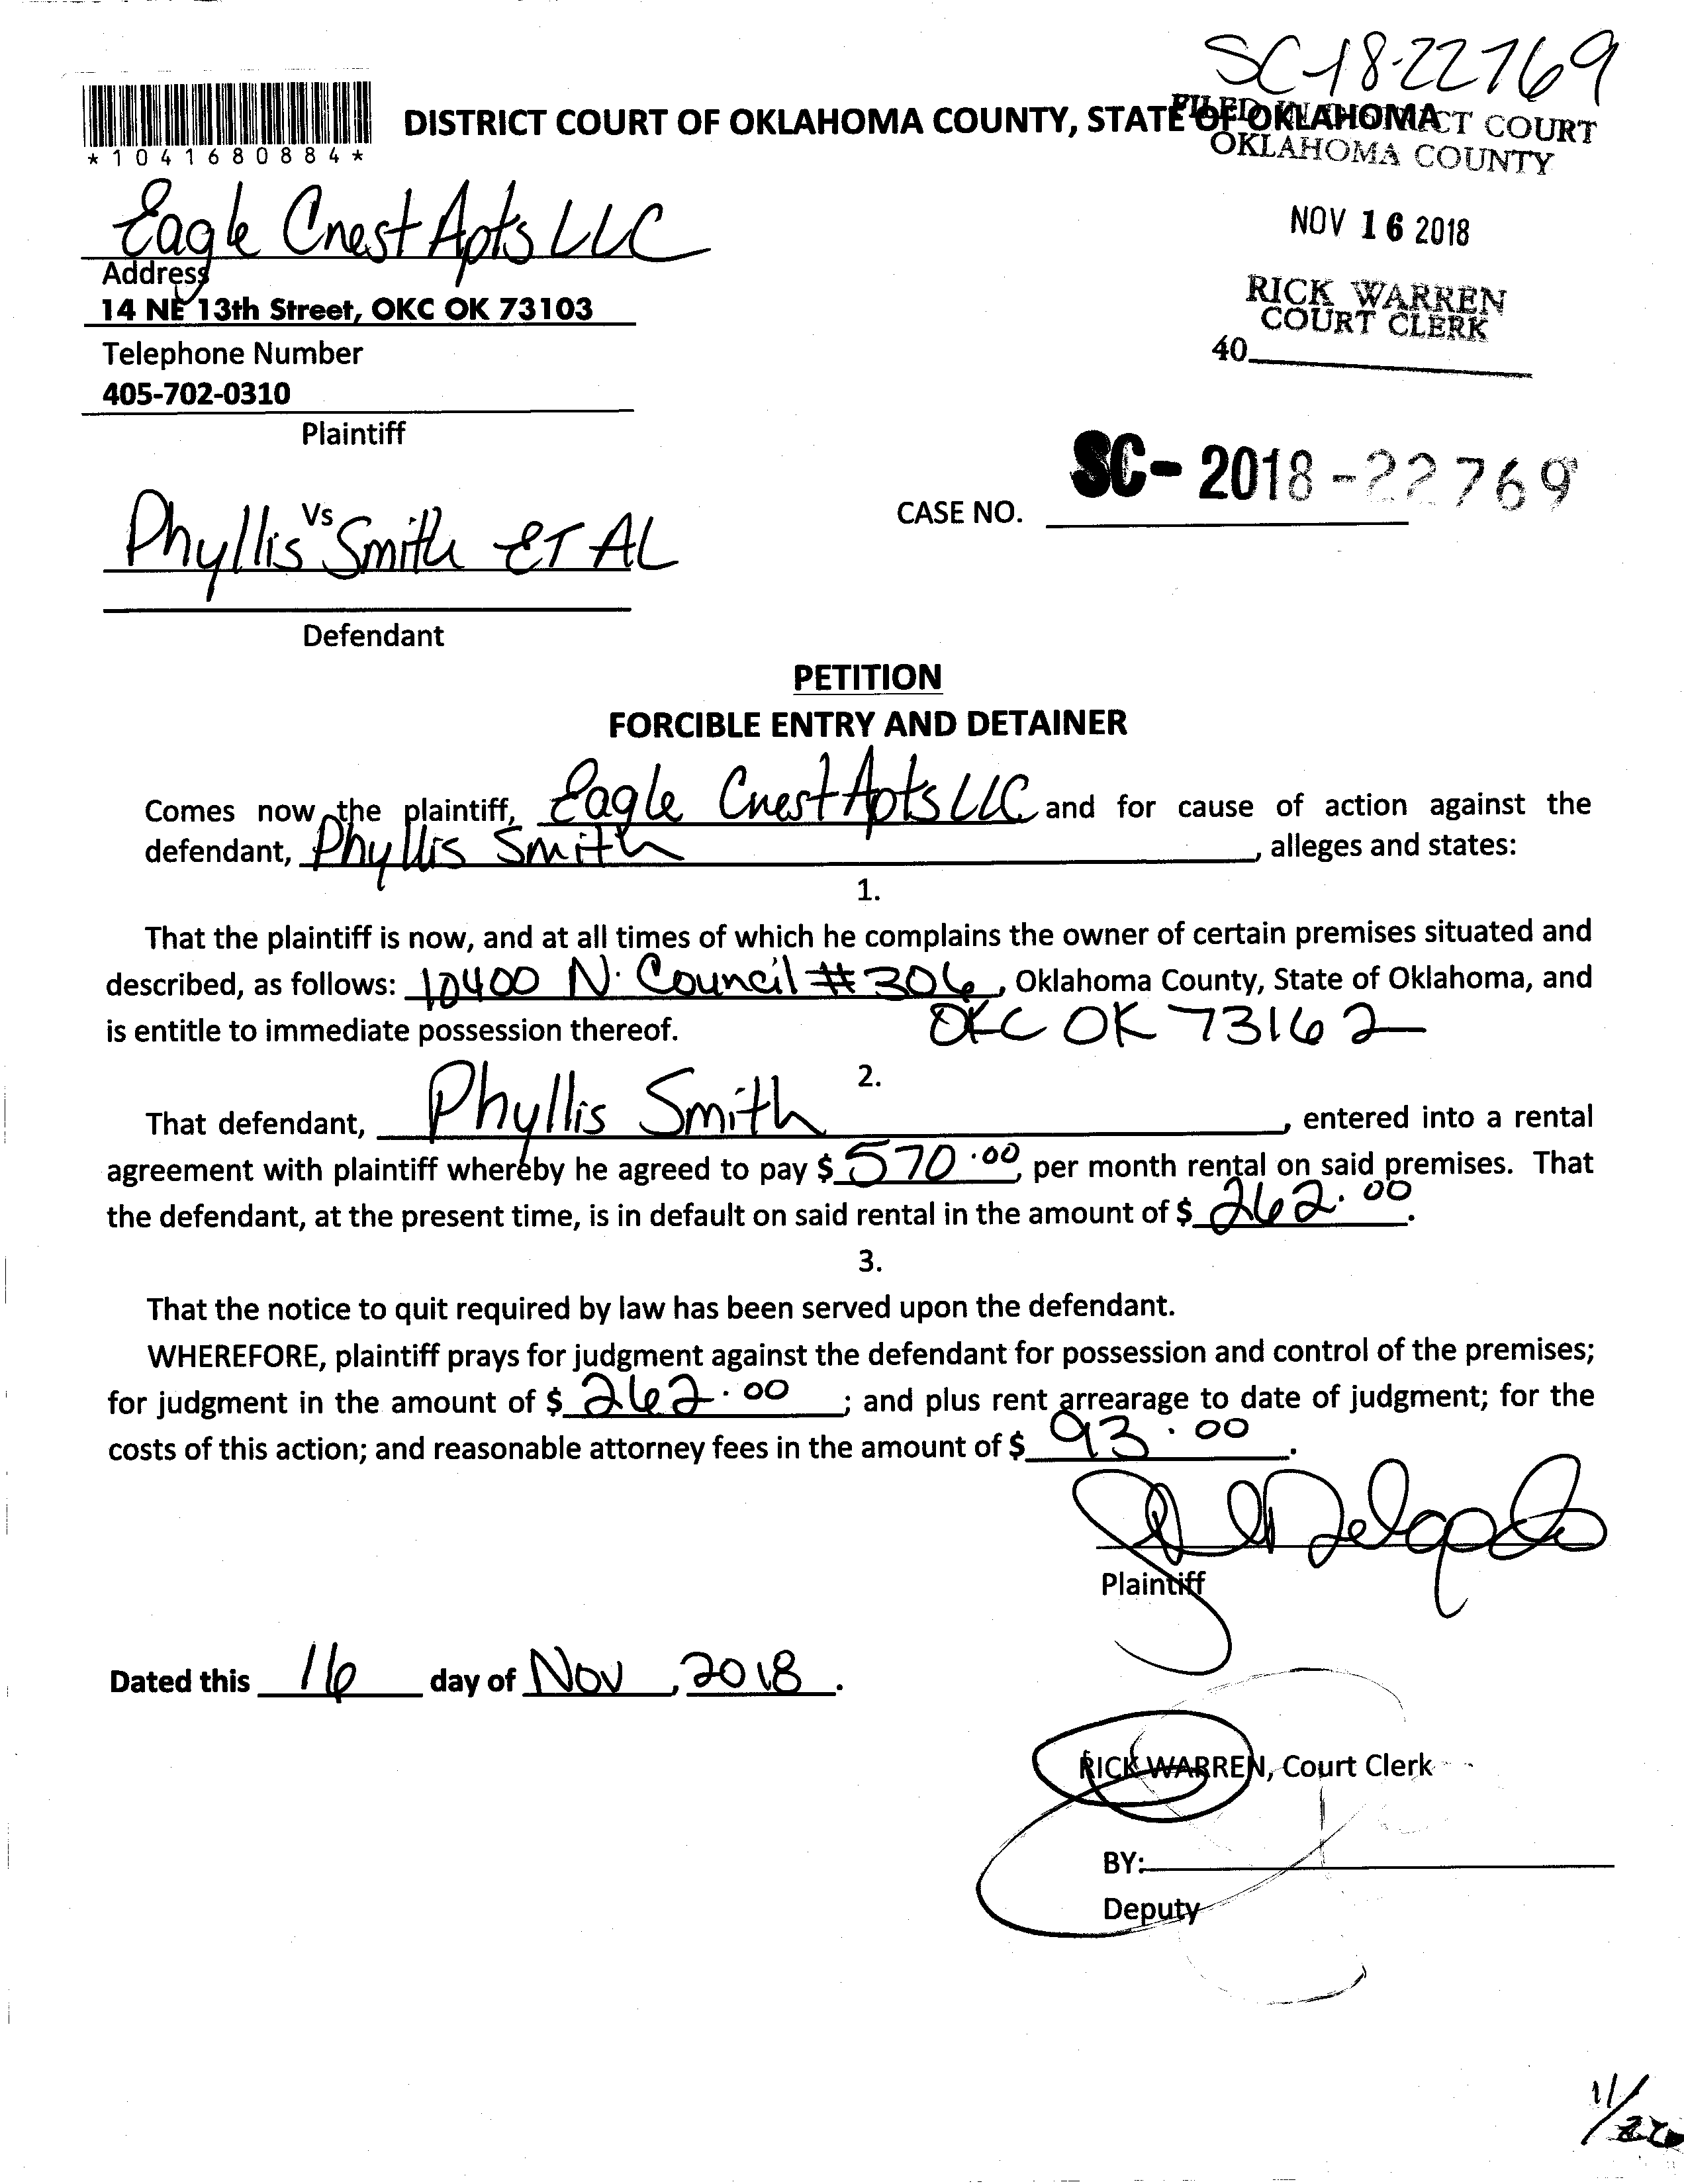 SC-18-22769
DISTRICT COURT OF OKLAHOMA COUNTY, STATE OF OKLAHOMA
FILED IN DISTRICT COURT
OKLAHOMA COUNTY
*1041680884*
NOV 16 2018
RICK WARREN
COURT CLERK
40
Eagle Crest Apts LLC
Address
14 NE 13th Street, OKC OK 73103
Telephone Number
405-702-0310
Plaintiff
Vs
CASE NO. SC-2018-22769
Phyllis Smith ET AL
Defendant
PETITION
FORCIBLE ENTRY AND DETAINER
Comes now the plaintiff, Eagle Crest Apts LLC and for cause of action against the
defendant, Phyllis Smith, alleges and states:
1.
That the plaintiff is now, and at all times of which he complains the owner of certain premises situated and
described, as follows: 10400 N. Council #306, Oklahoma County, State of Oklahoma, and
is entitle to immediate possession thereof. OKC OK 73162
2.
That defendant, Phyllis Smith, entered into a rental
agreement with plaintiff whereby he agreed to pay $570.00, per month rental on said premises. That
the defendant, at the present time, is in default on said rental in the amount of $262.00.
3.
That the notice to quit required by law has been served upon the defendant.
WHEREFORE, plaintiff prays for judgment against the defendant for possession and control of the premises;
for judgment in the amount of $262.00; and plus rent arrearage to date of judgment; for the
costs of this action; and reasonable attorney fees in the amount of $93.00.
Delgado
Plaintiff
Dated this 16 day of Nov, 2018.
RICK WARREN, Court Clerk
BY:
Deputy